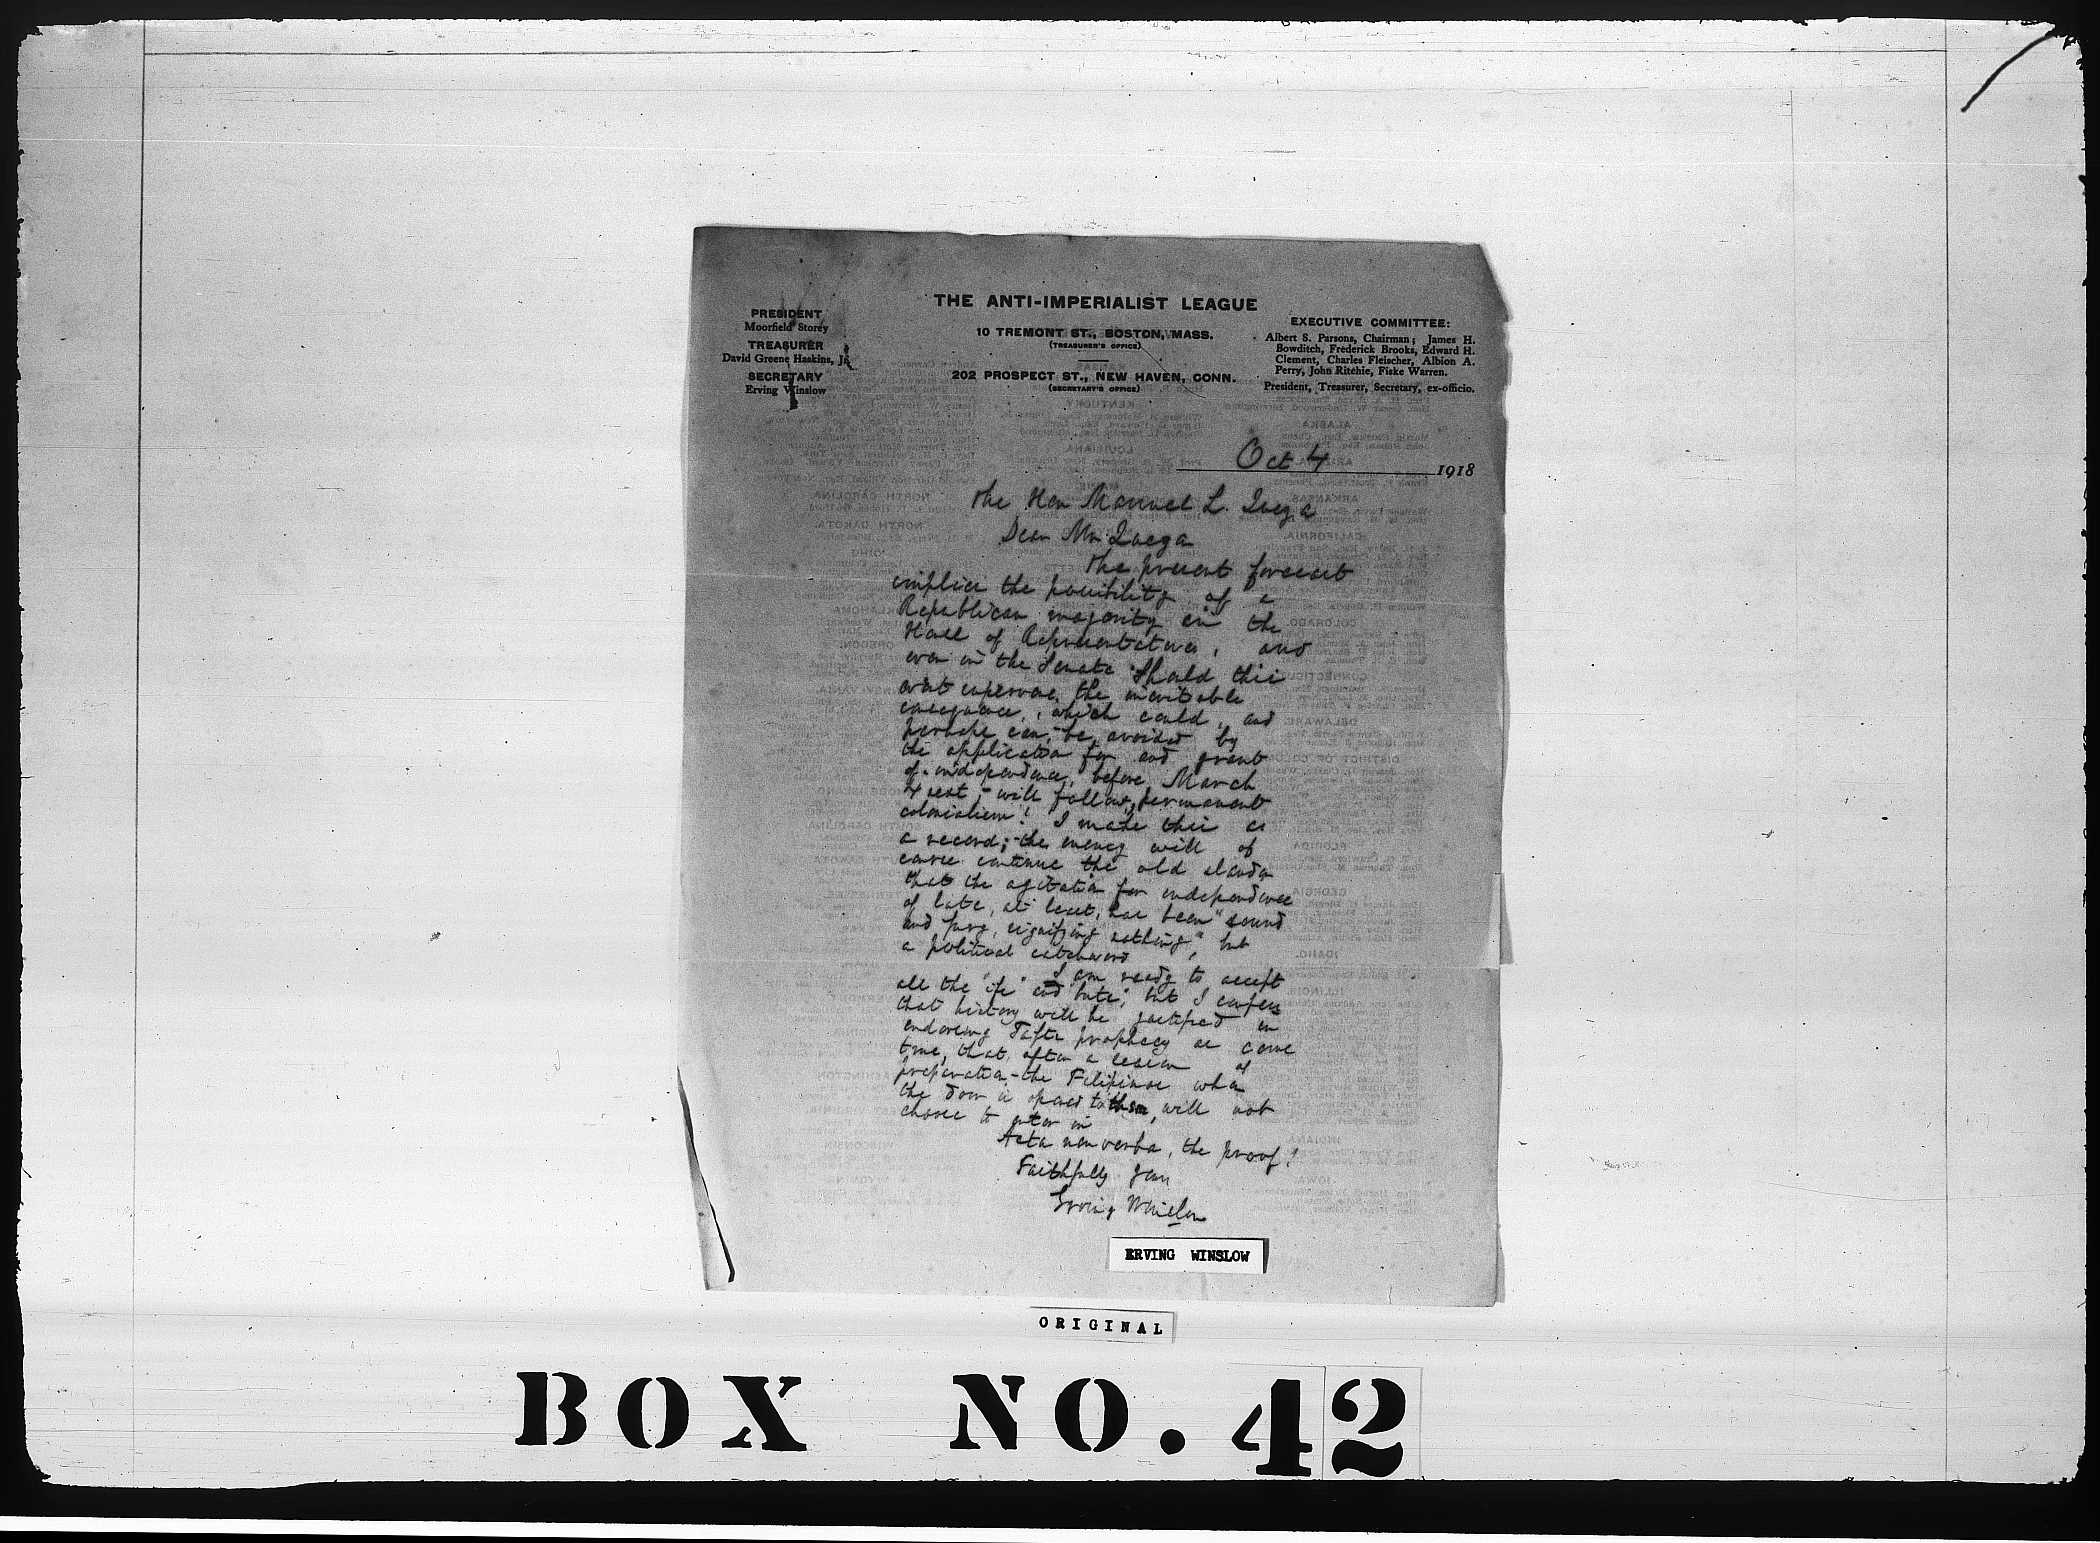 THE ANTI-IMPERIALIST LEAGUE
10 TREMONT ST., BOSTON, MASS.
(TREASURER'S OFFICE)
202 PROSPECT ST., NEW HAVEN, CONN.
(SECRETARY'S OFFICE)
PRESIDENT
Moorfield Storey
TREASURER
David Greene Haskins, Jr.
SECRETARY
Erving Winslow
EXECUTIVE COMMITTEE:
Albert S. Parsons, Chairman; James H.
Bowditch, Frederick Brooks, Edward H.
Clement, Charles Fleischer, Albion A.
Perry, John Ritchie, Fiske Warren.
President, Treasurer, Secretary, ex-officio.
Oct 4 1918
The Hon Manuel L. Quezon
Dear Mr Quezon
The present forecast
implies the possibility of a
Republican majority in the
House of Representatives, and
even in the Senate. Should this
event supervene, the inevitable
consequence, which could, and
perhaps can, be avoided by
the application for and grant
of independence, before March
4 next, - will follow, permanent
colonialism! I make this as
a record; the enemy will of
course continue the old slander
that the agitation for independence
of late, at least, has been "sound
and fury, signifying nothing", but
a political catchword
I am ready to accept
all the "ifs" and "buts", but I confess
that history will be justified in
endorsing Tafts prophecy as come
true, that after a season of
preparation - the Filipinos when
the door is opened to them, will not
choose to enter in
Acta non verba, the proof!
Faithfully yours
Erving Winslow
ERVING WINSLOW
ORIGINAL
BOX NO. 42